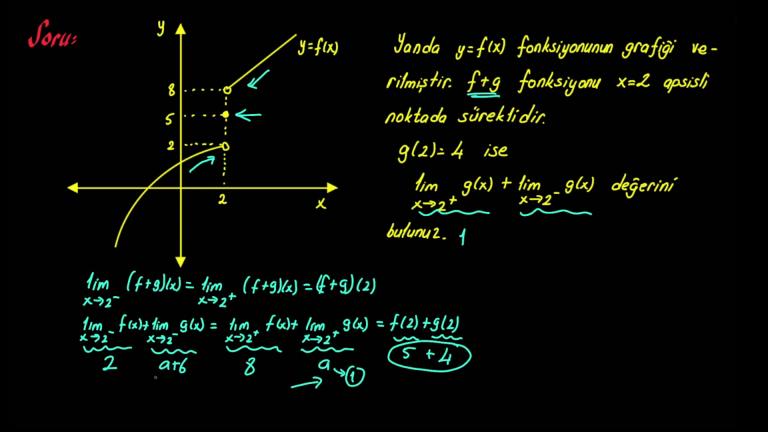 Soru:
y
y=f(x)
8
5
2
2
x
Yanda y=f(x) fonksiyonunun grafiği ve-
rilmiştir. f+g fonksiyonu x=2 apsisli
noktada süreklidir.
g(2)=4 ise
lim x→2⁺ g(x) + lim x→2⁻ g(x) değerini
bulunuz. 1
lim x→2⁻ (f+g)(x) = lim x→2⁺ (f+g)(x) = (f+g)(2)
lim x→2⁻ f(x) + lim x→2⁻ g(x) = lim x→2⁺ f(x) + lim x→2⁺ g(x) = f(2)+g(2)
2 a+6 8 a→1 5+4